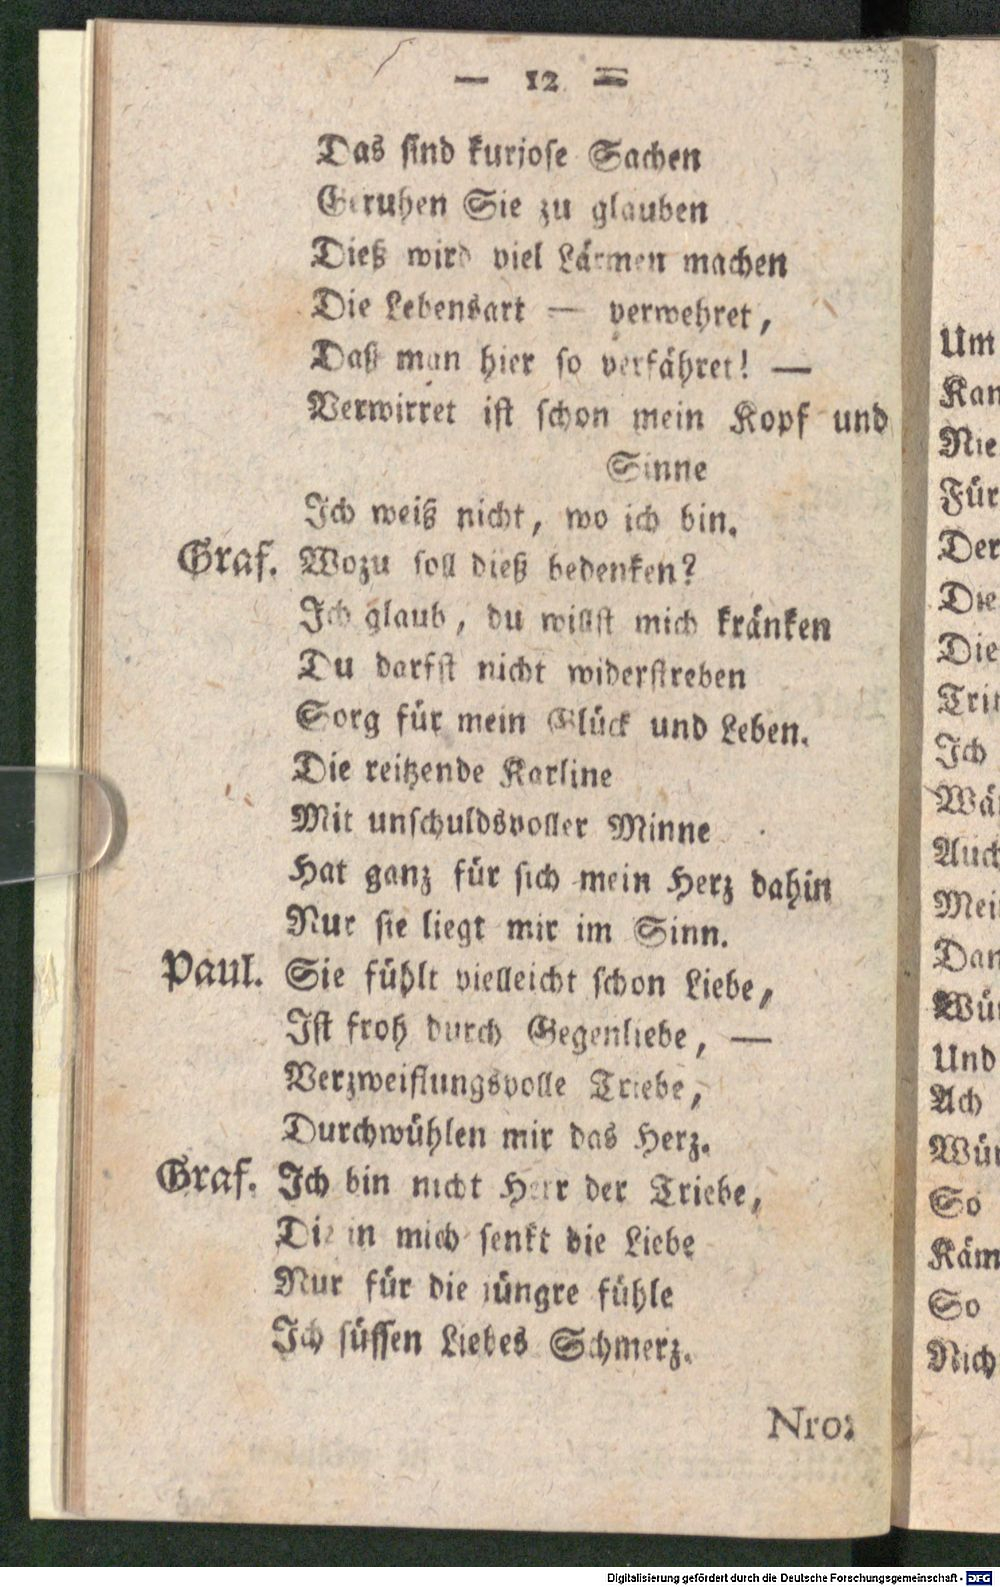 — 12 =
Das sind kurjose Sachen
Geruhen Sie zu glauben
Dieß wird viel Lärmen machen
Die Lebensart — verwehret,
Daß man hier so verfähret! —
Verwirret ist schon mein Kopf und
Sinne
Ich weiß nicht, wo ich bin.
Graf. Wozu soll dieß bedenken?
Ich glaub, du willst mich kränken
Du darfst nicht widerstreben
Sorg für mein Glück und Leben.
Die reitzende Karline
Mit unschuldsvoller Minne
Hat ganz für sich mein Herz dahin
Nur sie liegt mir im Sinn.
Paul. Sie fühlt vielleicht schon Liebe,
Ist froh durch Gegenliebe, —
Verzweiflungsvolle Triebe,
Durchwühlen mir das Herz.
Graf. Ich bin nicht Herr der Triebe,
Die in mich senkt die Liebe
Nur für die jüngre fühle
Ich süssen Liebes Schmerz.
Nro:
Um
Kan
Nie
Für
Der
Die
Die
Trin
Ich
Wär
Auch
Mei
Dan
Wür
Und
Ach
Wür
So
Käm
So
Nich
Digitalisierung gefördert durch die Deutsche Forschungsgemeinschaft - DFG